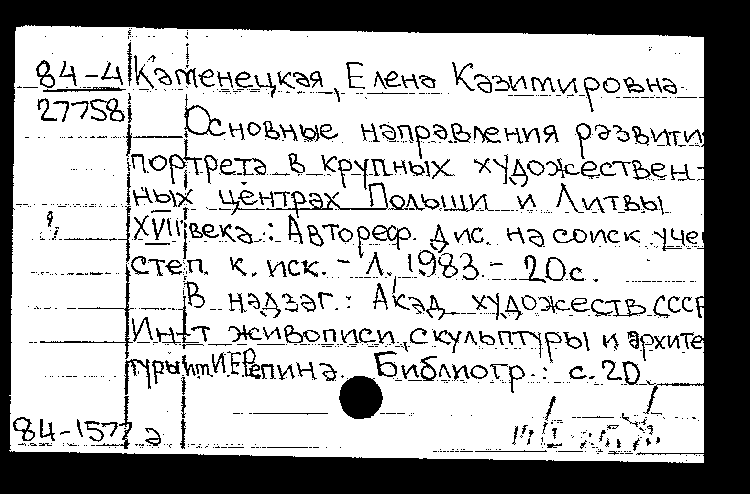 84-4 Каменецкая, Елена Казимировна
27758
Основные направления развити
портрета в крупных художествен-
ных центрах Польши и Литвы
XVII века: Автореф. дис. на соиск уче
степ. к. иск. - Л. 1983. - 20с.
В надзаг.: Акад художеств СССР
Ин-т живописи, скульптуры и архите
туры им И.Е Репина. Библиогр.: с. 20
84-1577 а